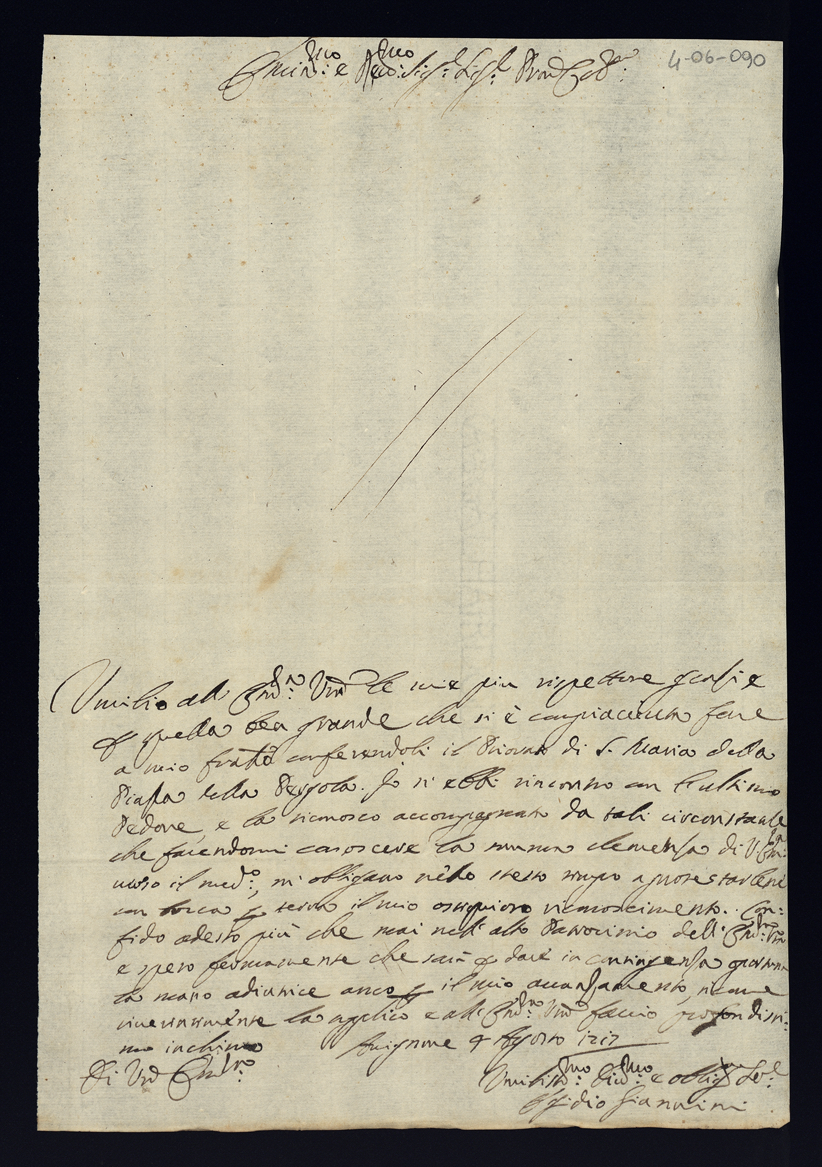 4-06-090
Emin.mo e Rev.mo Sig.r Sig.r Pron Col.mo
Umilio all' Em.za V.ra le mie piu rispettose grazie
p quella ben grande che si è compiaciuta fare
a mio frate conferendoli il Priorato di S. Maria della
Piazza della Pergola. Io ne ebbi rincontro con l'ultimo
Pedone, e la riconosco accompagnata da tali circonstanze
che facendomi conoscere la somma clemenza di V. Em.za
verso il med.o, mi obligano nello stesso tempo a protestarlene
con tutta il mio ossequioso riconoscimento. Con-
fido adesso più che mai nell' alto Patrocinio dell' Em.za V.ra
e spero fermamente che sarà p dare in contingenza oportuna
la mano adiutrice anco p il mio avanzamento, ne
vivissimamente la suplico e all' Em.za V.ra faccio profondissi-
mo inchino
Avignone 4 Agosto 1717
Di V.ra Em.za
Umiliss.mo Div.mo e oblig.mo Ser.e
Egidio Giannini